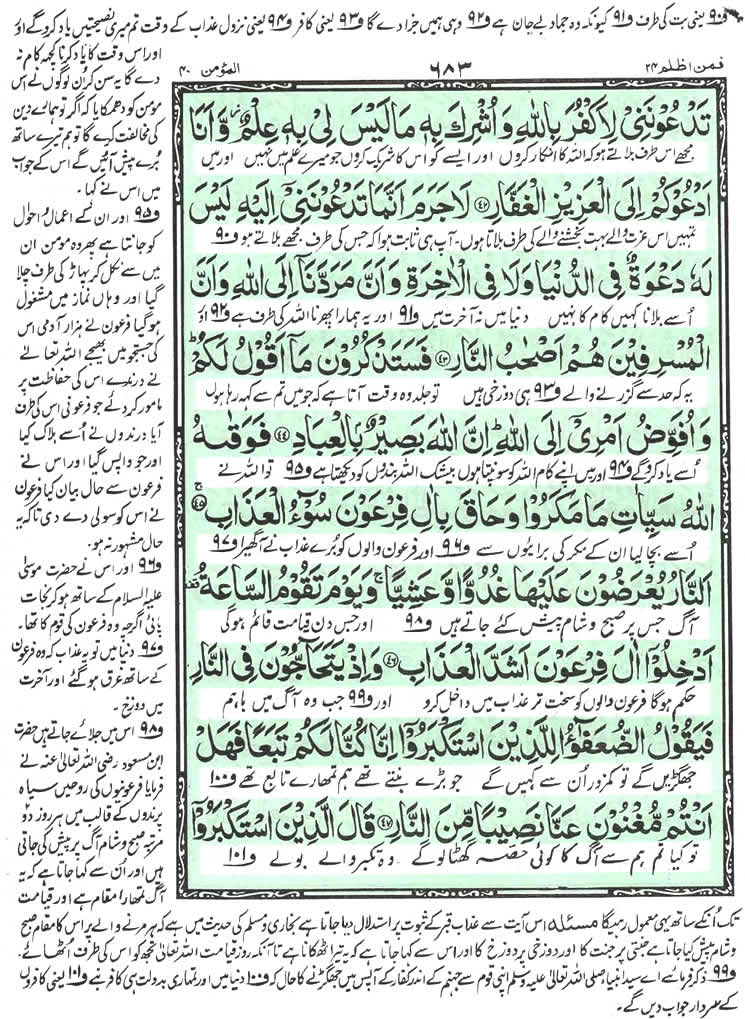 و۹۰ یعنی بت کی طرف و۹۱ کیونکہ وہ جماد بے جان ہے و۹۲ وہی ہمیں جزا دے گا و۹۳ یعنی کافر و۹۴ یعنی نزول عذاب کے وقت تم میری نصیحتیں یاد کرو گے اور
فمن اظلم ۲۴
۶۸۳
المؤمن ۴۰
تَدْعُوْنَنِیْ لِاَكْفُرَ بِاللّٰهِ وَ اُشْرِكَ بِهٖ مَا لَیْسَ لِیْ بِهٖ عِلْمٌ وَّ اَنَا
مجھے اس طرف بلاتے ہو کہ اللہ کا انکار کروں اور ایسے کو اس کا شریک کروں جو میرے علم میں نہیں اور میں
اَدْعُوْكُمْ اِلَى الْعَزِیْزِ الْغَفَّارِ ﴿۴۲﴾ لَا جَرَمَ اَنَّمَا تَدْعُوْنَنِیْۤ اِلَیْهِ لَیْسَ
تمہیں اس عزت والے بہت بخشنے والے کی طرف بلاتا ہوں۔ آپ ہی ثابت ہوا کہ جس کی طرف مجھے بلاتے ہو و۹۰
لَهٗ دَعْوَةٌ فِی الدُّنْیَا وَ لَا فِی الْاٰخِرَةِ وَ اَنَّ مَرَدَّنَاۤ اِلَى اللّٰهِ وَ اَنَّ
اُسے بلانا کہیں کام کا نہیں دنیا میں نہ آخرت میں و۹۱ اور یہ ہمارا پھرنا اللہ کی طرف ہے و۹۲ اور
الْمُسْرِفِیْنَ هُمْ اَصْحٰبُ النَّارِ ﴿۴۳﴾ فَسَتَذْكُرُوْنَ مَاۤ اَقُوْلُ لَكُمْ
یہ کہ حد سے گزرنے والے و۹۳ ہی دوزخی ہیں تو جلد وہ وقت آتا ہے کہ جو میں تم سے کہہ رہا ہوں
وَ اُفَوِّضُ اَمْرِیْۤ اِلَى اللّٰهِ اِنَّ اللّٰهَ بَصِیْرٌۢ بِالْعِبَادِ ﴿۴۴﴾ فَوَقٰىهُ
اُسے یاد کرو گے و۹۴ اور میں اپنے کام اللہ کو سونپتا ہوں بیشک اللہ بندوں کو دیکھتا ہے و۹۵ تو اللہ نے
اللّٰهُ سَیِّاٰتِ مَا مَكَرُوْا وَ حَاقَ بِاٰلِ فِرْعَوْنَ سُوْٓءُ الْعَذَابِ ﴿۴۵﴾
اُسے بچا لیا ان کے مکر کی برائیوں سے و۹۶ اور فرعون والوں کو بُرے عذاب نے آگھیرا و۹۷
اَلنَّارُ یُعْرَضُوْنَ عَلَیْهَا غُدُوًّا وَّ عَشِیًّا ۚ وَ یَوْمَ تَقُوْمُ السَّاعَةُ
آگ جس پر صبح و شام پیش کئے جاتے ہیں و۹۸ اور جس دن قیامت قائم ہوگی
اَدْخِلُوْۤا اٰلَ فِرْعَوْنَ اَشَدَّ الْعَذَابِ ﴿۴۶﴾ وَ اِذْ یَتَحَآجُّوْنَ فِی النَّارِ
حکم ہوگا فرعون والوں کو سخت تر عذاب میں داخل کرو اور و۹۹ جب وہ آگ میں باہم
فَیَقُوْلُ الضُّعَفٰٓؤُا لِلَّذِیْنَ اسْتَكْبَرُوْۤا اِنَّا كُنَّا لَكُمْ تَبَعًا فَهَلْ
جھگڑیں گے تو کمزور اُن سے کہیں گے جو بڑے بنتے تھے ہم تمھارے تابع تھے و۱۰۰
اَنْتُمْ مُّغْنُوْنَ عَنَّا نَصِیْبًا مِّنَ النَّارِ ﴿۴۷﴾ قَالَ الَّذِیْنَ اسْتَكْبَرُوْۤا
تو کیا تم ہم سے آگ کا کوئی حصہ گھٹا لوگے وہ تکبر والے بولے و۱۰۱
اور اس وقت کا یاد کرنا کچھ کام نہ
دے گا یہ سن کر ان لوگوں نے اس
مؤمن کو دھمکایا کہ اگر تو ہمارے دین
کی مخالفت کرے گا تو ہم تیرے ساتھ
بُرے پیش آئیں گے اس کے جواب
میں اس نے کہا۔
و۹۵ اور ان کے اعمال و احوال
کو جانتا ہے پھر وہ مؤمن ان
میں سے نکل کر پہاڑ کی طرف چلا
گیا اور وہاں نماز میں مشغول
ہو گیا فرعون نے ہزار آدمی اس
کی جستجو میں بھیجے اللہ تعالیٰ
نے درندے اس کی حفاظت پر
مامور کر دئے جو فرعونی اس کی طرف
آیا درندوں نے اُسے ہلاک کیا
اور جو واپس گیا اور اس نے
فرعون سے حال بیان کیا فرعون
نے اس کو سولی دے دی تاکہ یہ
حال مشہور نہ ہو۔
و۹۶ اور اس نے حضرت موسیٰ
علیہ السلام کے ساتھ ہو کر نجات
پائی اگرچہ وہ فرعون کی قوم کا تھا۔
و۹۷ دنیا میں تو یہ عذاب کہ وہ فرعون
کے ساتھ غرق ہو گئے اور آخرت
میں دوزخ۔
و۹۸ اس میں جلائے جاتے ہیں حضرت
ابن مسعود رضی اللہ تعالیٰ عنہ نے
فرمایا فرعونیوں کی روحیں سیاہ
پرندوں کے قالب میں ہر روز دو
مرتبہ صبح و شام آگ پر پیش کی جاتی
ہیں اور اُن سے کہا جاتا ہے کہ یہ
آگ تمھارا مقام ہے اور قیامت
تک اُنکے ساتھ یہی معمول رہیگا مسئلہ اس آیت سے عذاب قبر کے ثبوت پر استدلال کیا جاتا ہے بخاری و مسلم کی حدیث میں ہے کہ ہر مرنے والے پر اس کا مقام صبح
و شام پیش کیا جاتا ہے جنتی پر جنت کا اور دوزخی پر دوزخ کا اور اس سے کہا جاتا ہے کہ یہ تیرا ٹھکانا ہے تا آنکہ روز قیامت اللہ تعالیٰ تجھ کو اس کی طرف اُٹھائے۔
و۹۹ ذکر فرمائیے اے سید انبیا صلی اللہ تعالیٰ علیہ وسلم اپنی قوم سے جہنم کے اندر کفار کے آپس میں جھگڑنے کا حال کہ و۱۰۰ دنیا میں اور تمہاری بدولت ہی کافر بنے و۱۰۱ یعنی کافروں
کے سردار جواب دیں گے۔